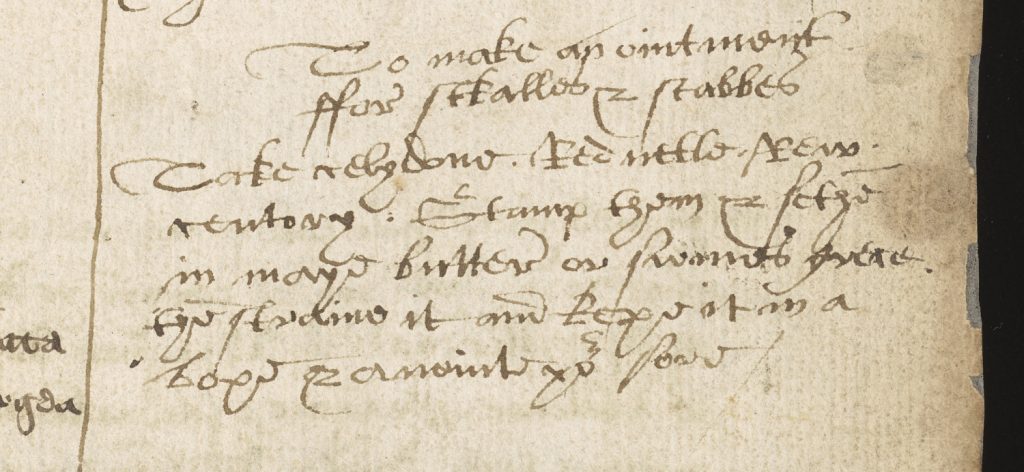 To make an ointment
ffor skalles & scabbes
Take celydone. Red nettle. Rew.
centory. Stamp them & sethe
in maye butter or swines grece.
the straine it and kepe it in a
boxe & anointe ye sore
ata
gda